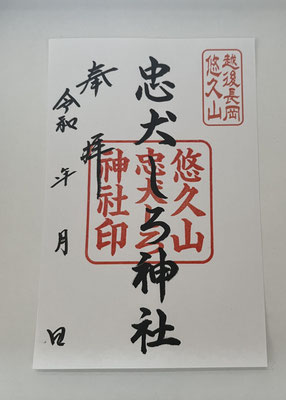 越後長岡
悠久山
忠犬しろ神社
悠久山
忠犬しろ
神社印
奉拝
令和 年 月 日